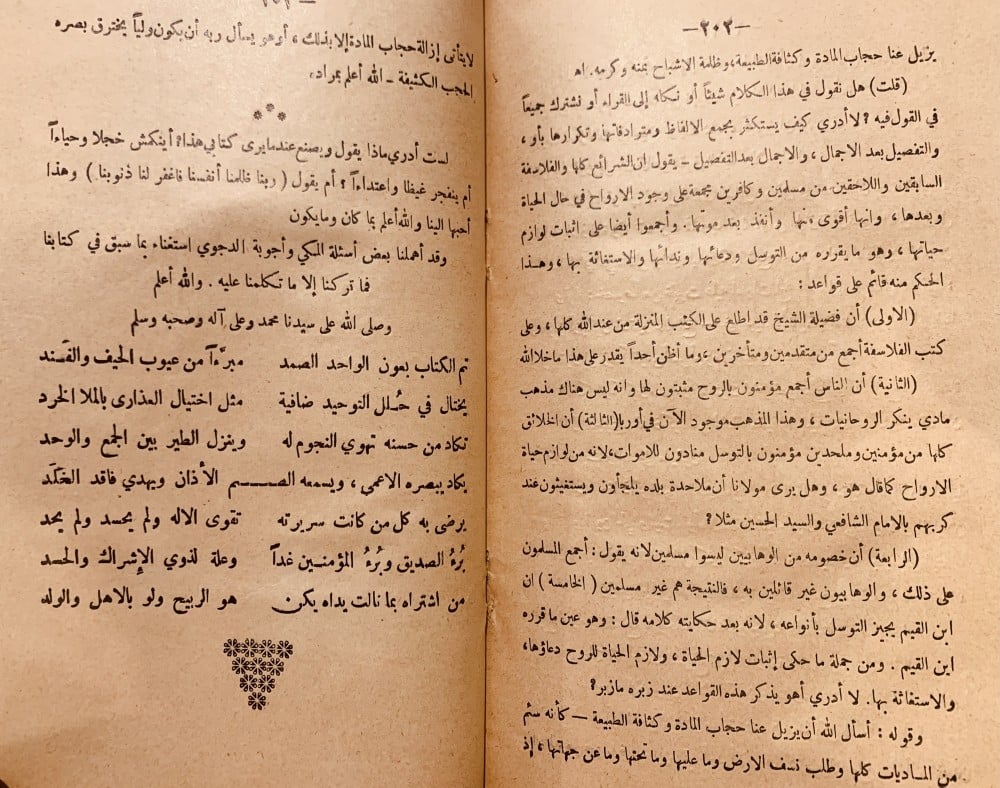 —٣٠٣—
يزيل عنا حجاب المادة وكثافة الطبيعة، وظلمة الاشباح بمنه وكرمه. اه
(قلت) هل نقول في هذا الكلام شيئاً أو نكله إلى القراء أو نشترك جميعاً
في القول فيه؟ لا أدري كيف يستكثر بجمع الالفاظ ومترادفاتها وتكرارها بأو،
والتفصيل بعد الاجمال، والاجمال بعد التفصيل - يقول ان الشرائع كلها والفلاسفة
السابقين واللاحقين من مسلمين وكافرين مجمعة على وجود الارواح في حال الحياة
وبعدها، وانها أقوى منها وأنفذ بعد موتها. وأجمعوا أيضا على اثبات لوازم
حياتها، وهو ما يقرره من التوسل ودعائها وندائها والاستغاثة بها، وهذا
الحكم منه قائم على قواعد:
(الاولى) أن فضيلة الشيخ قد اطلع على الكتب المنزلة من عند الله كلها، وعلى
كتب الفلاسفة أجمع من متقدمين ومتأخرين، وما أظن أحداً يقدر على هذا ما خلا الله
(الثانية) أن الناس أجمع مؤمنون بالروح مثبتون لها وانه ليس هناك مذهب
مادي ينكر الروحانيات، وهذا المذهب موجود الآن في أوربا (الثالثة) أن الخلائق
كلها من مؤمنين وملحدين مؤمنون بالتوسل منادون للاموات، لانه من لوازم حياة
الارواح كما قال هو، وهل يرى مولانا أن ملاحدة بلده يلجأون ويستغيثون عند
كربهم بالامام الشافعي والسيد الحسين مثلا؟
(الرابعة) أن خصومه من الوهابيين ليسوا مسلمين لانه يقول: أجمع المسلمون
على ذلك، والوهابيون غير قائلين به، فالنتيجة هم غير مسلمين (الخامسة) ان
ابن القيم يجيز التوسل بأنواعه، لانه بعد حكايته كلامه قال: وهو عين ما قرره
ابن القيم. ومن جملة ما حكى إثبات لازم الحياة، ولازم الحياة للروح دعاؤها،
والاستغاثة بها. لا أدري أهو يذكر هذه القواعد عند زبره ما زبر؟
وقوله: أسأل الله أن يزيل عنا حجاب المادة وكثافة الطبيعة — كأنه سئم
من الماديات كلها وطلب نسف الارض وما عليها وما تحتها وما عن جهاتها، إذ
لا يتأتى إزالة حجاب المادة إلا بذلك، أو هو يسأل ربه أن يكون ولياً يخترق بصره
الحجب الكثيفة - الله أعلم بمراده
* * *
لست أدري ماذا يقول ويصنع عندما يرى كتابي هذا؟ أينكمش خجلا وحياءاً
أم ينفجر غيظا واعتداءاً؟ أم يقول (ربنا ظلمنا أنفسنا فاغفر لنا ذنوبنا) وهذا
أحبها الينا والله أعلم بما كان وما يكون
وقد أهملنا بعض أسئلة المكي وأجوبة الدجوي استغناء بما سبق في كتابنا
فما تركنا إلا ما تكلمنا عليه. والله أعلم
وصلى الله على سيدنا محمد وعلى آله وصحبه وسلم
تم الكتاب بعون الواحد الصمد مبرَّءاً من عيوب الحيف والفَند
يختال في حُلل التوحيد ضافية مثل اختيال العذارى بالملا الخرد
تكاد من حسنه تهوي النجوم له وينزل الطير بين الجمع والوحد
يكاد يبصره الاعمى، ويسمعه الصـــم الأذان ويهدي فاقد الخَلَد
يرضى به كل من كانت سريرته تقوى الاله ولم يحسد ولم يحد
بُرْءُ الصديق وبُرْءُ المؤمنين غداً وعلة لذوي الإشراك والحسد
من اشتراه بما نالت يداه يكن هو الربيح ولو بالاهل والولد